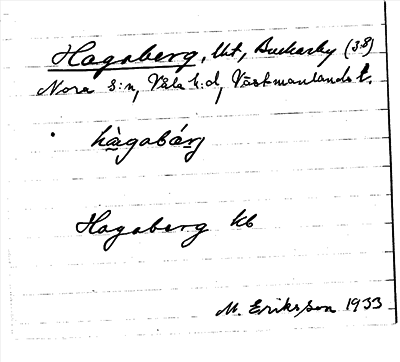 Hagaberg, lht, Buckarby (3:8)
Nora s:n, Våla h:d, Västmanlands l.
hàgabárj
Hagaberg kb
M. Eriksson 1933